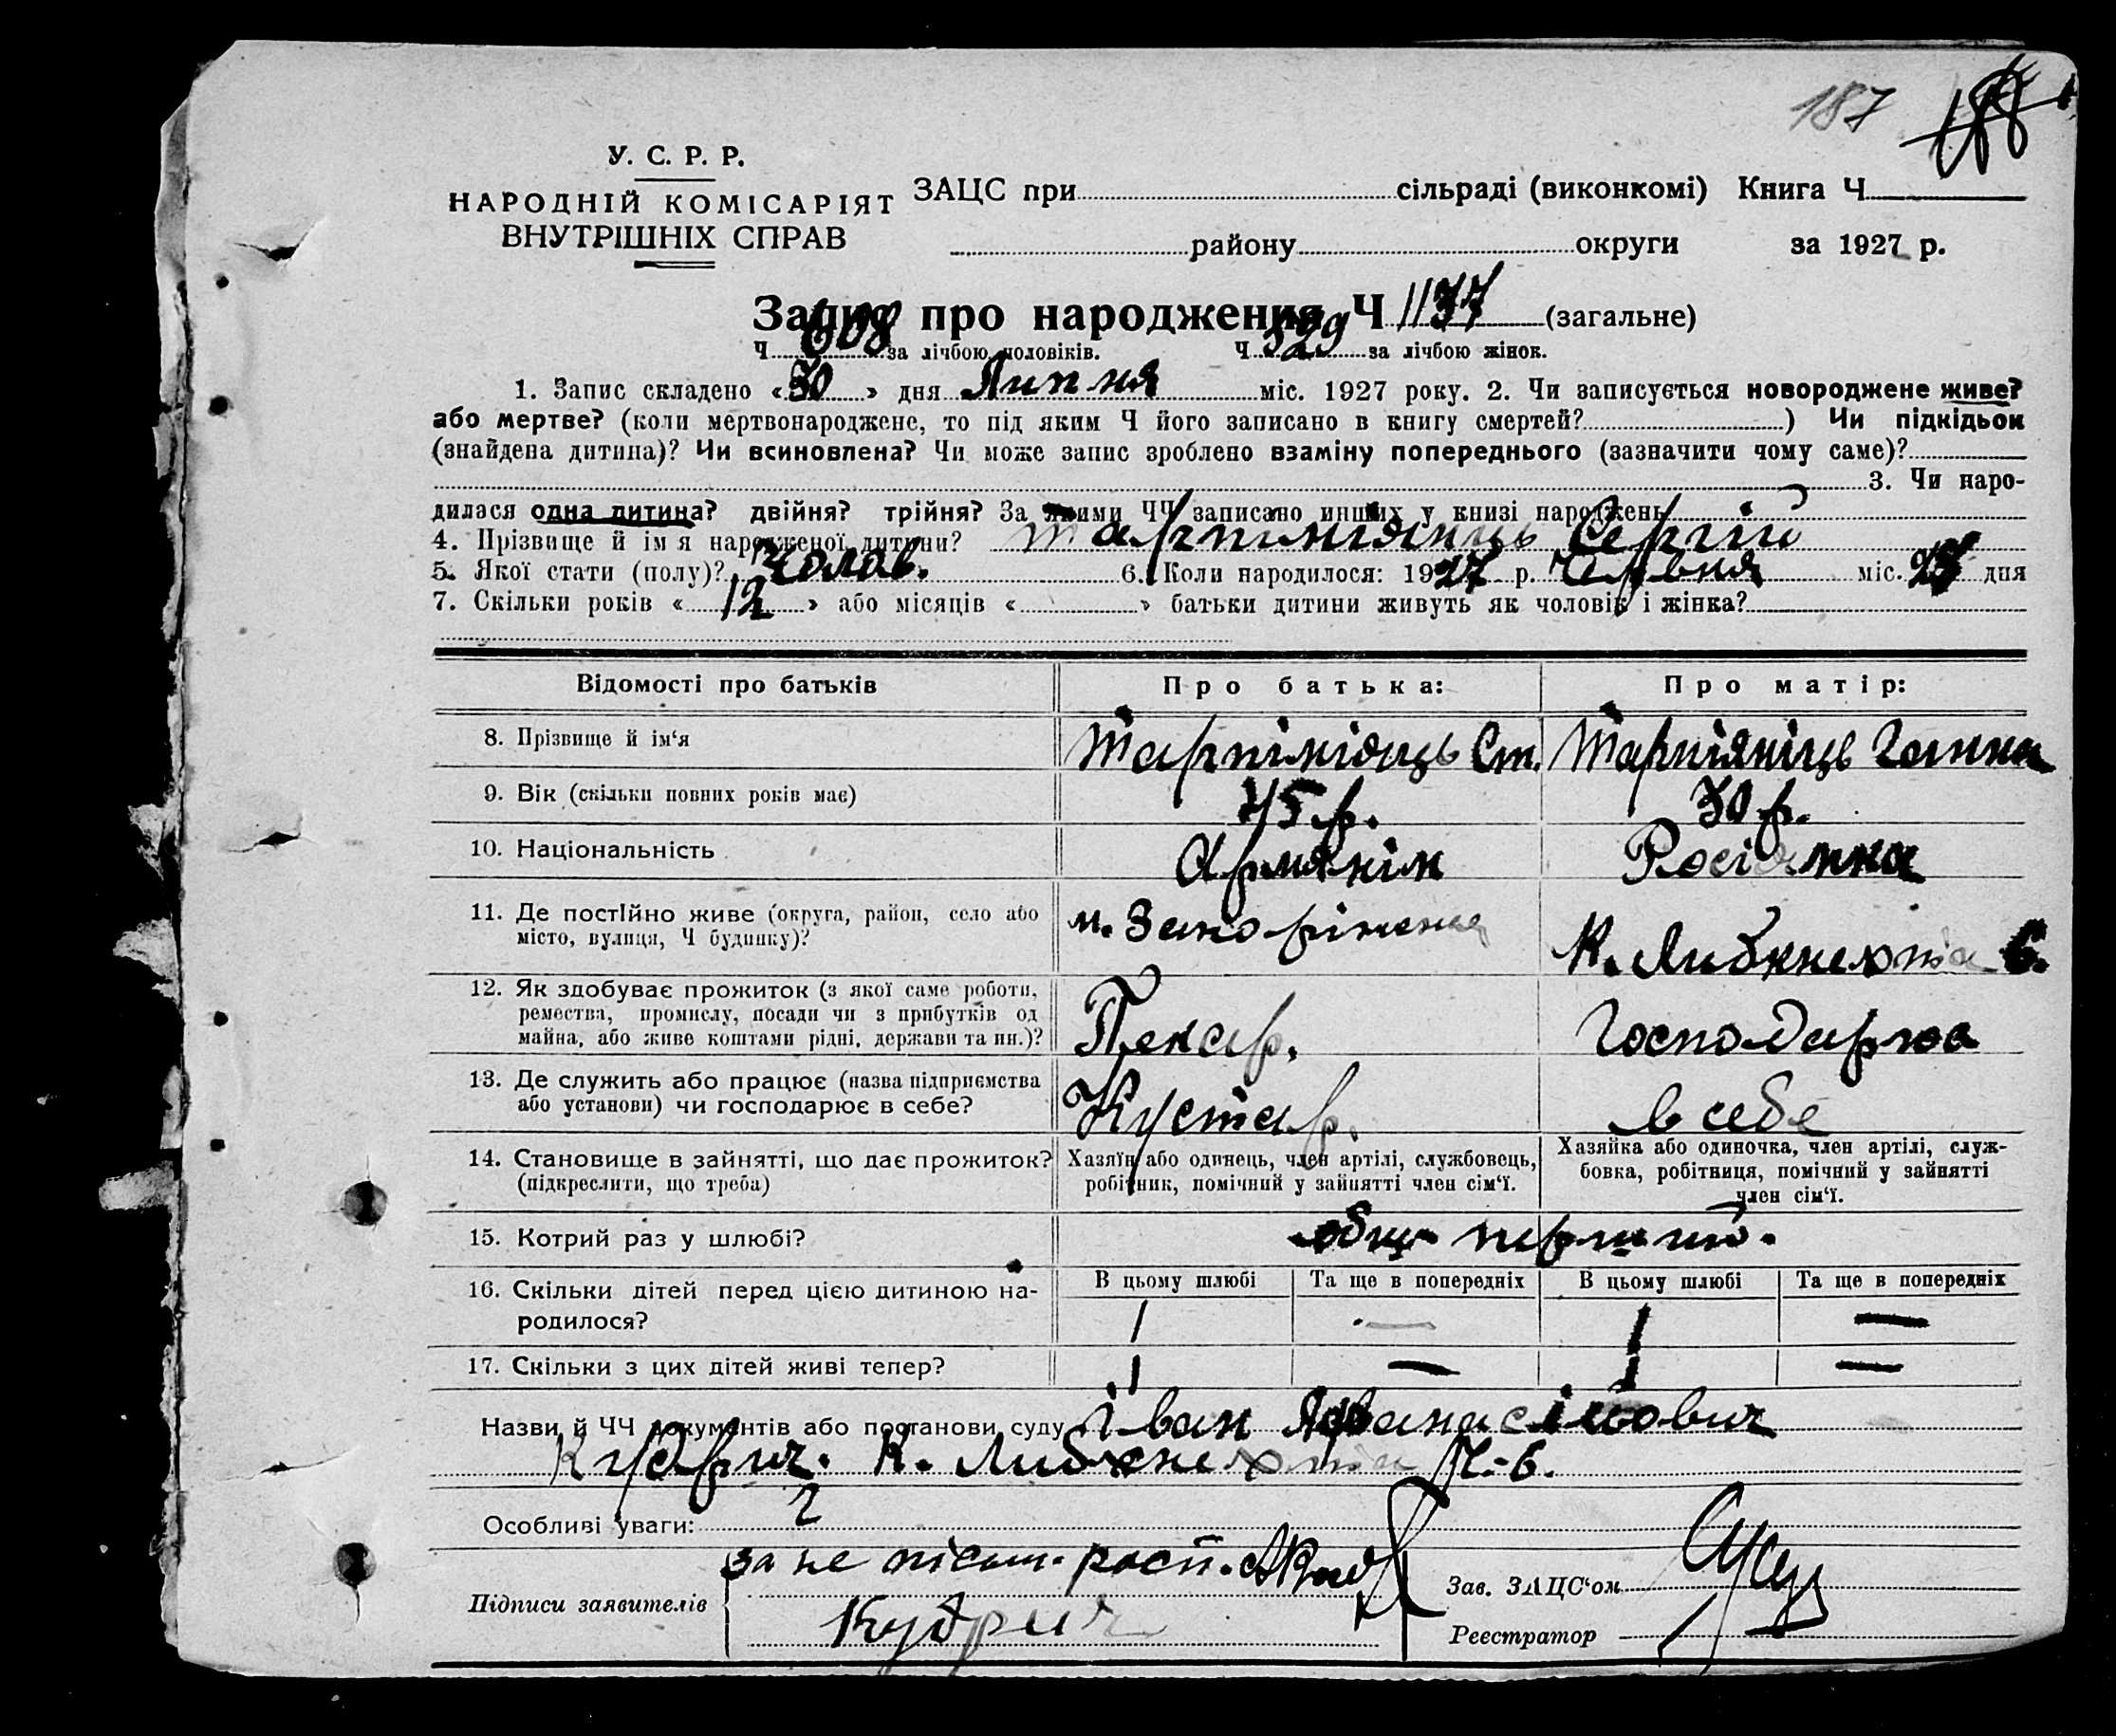 187
У. С. Р. Р.
НАРОДНІЙ КОМІСАРІЯТ
ВНУТРІШНІХ СПРАВ
ЗАЦС при сільраді (виконкомі) Книга Ч
району округи за 1927 р.
Запис про народження Ч 1137 (загальне)
Ч 608 за лічбою чоловіків. Ч 529 за лічбою жінок.
1. Запис складено «30» дня Липня міс. 1927 року. 2. Чи записується новороджене живе?
або мертве? (коли мертвонароджене, то під яким Ч його записано в книгу смертей? ) Чи підкідьок
(знайдена дитина)? Чи всиновлена? Чи може запис зроблено взаміну попереднього (зазначити чому саме)?
3. Чи наро-
дилася одна дитина? двійня? трійня? За якими ЧЧ записано инших у книзі народжень
4. Прізвище й ім'я народженої дитини? Сергій
5. Якої стати (полу)? Чолов. 6. Коли народилося: 1927 р. Червня міс. дня
7. Скільки років «12» або місяців « » батьки дитини живуть як чоловік і жінка?
Відомості про батьків
Про батька:
Про матір:
8. Прізвище й ім'я
Тарпініянць Ст.
Ганна
9. Вік (скільки повних років має)
45 р.
30 р.
10. Національність
Армянін
Росіянка
11. Де постійно живе (округа, район, село або
місто, вулиця, Ч будинку)?
м. Запоріжжя
К. Либкнехта 6.
12. Як здобуває прожиток (з якої саме роботи,
ремества, промислу, посади чи з прибутків од
майна, або живе коштами рідні, держави та ин.)?
Пекар.
Господарює
13. Де служить або працює (назва підприємства
або установи) чи господарює в себе?
Кустар.
в себе
14. Становище в зайнятті, що дає прожиток?
(підкреслити, що треба)
Хазяїн або одинець, член артілі, службовець,
робітник, помічний у зайнятті член сім'ї.
Хазяйка або одиночка, член артілі, служ-
бовка, робітниця, помічний у зайнятті
член сім'ї.
15. Котрий раз у шлюбі?
16. Скільки дітей перед цією дитиною на-
родилося?
В цьому шлюбі Та ще в попередніх В цьому шлюбі Та ще в попередніх
1 — 1 —
17. Скільки з цих дітей живі тепер?
1 — 1 —
Назви й ЧЧ документів або постанови суду Іван
Кудрич. К. Либкнехта Ч-6.
Особливі уваги:
Підписи заявителів
за не письм. росп.
Кудрич
Зав. ЗАЦС'ом
Реєстратор